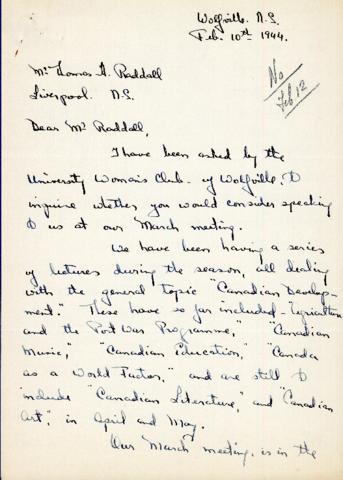 Wolfville. N.S.
Feb. 10th 1944.
Mr Thomas H. Raddall
Liverpool N.S.
No
Feb 12
Dear Mr Raddall,
I have been asked by the
University Woman's Club of Wolfville, to
inquire whether you would consider speaking
to us at our March meeting.
We have been having a series
of lectures during the season, all dealing
with the general topic "Canadian Develop-
ment." These have so far included "Agriculture
and the Post War Programme," "Canadian
Music," "Canadian Education," "Canada
as a World Factor," and are still to
include "Canadian Literature," and "Canadian
Art," in April and May.
Our March meeting, is in the